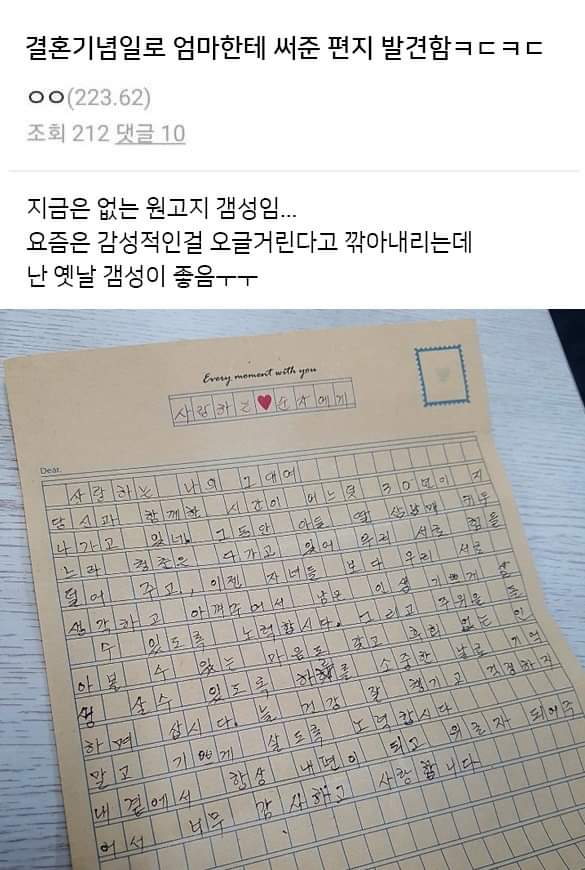 결혼기념일로 엄마한테 써준 편지 발견함ㅋㄷㅋㄷ
ㅇㅇ(223.62)
조회 212 댓글 10
지금은 없는 원고지 갬성임...
요즘은 감성적인걸 오글거린다고 깎아내리는데
난 옛날 갬성이 좋음ㅜㅜ
Every moment with you
사랑하는♥순자에게
Dear.
사랑하는 나의 그대여
당신과 함께한 시간이 어느덧 30년이 지
나가고 있네. 그동안 아들 딸 삼남매 키우
느라 청춘은 다가고 있어 우리 서로 힘을
덜어 주고, 이젠 자녀들 보다 우리 서로
생각하고 아껴주어서 남은 인생 기쁘게 살
수 있도록 노력합시다. 그리고 주위를 돌
아볼 수 있는 마음도 갖고 후회 없는 인
생 살수 있도록 하루를 소중한 날로 기억
하며 삽시다. 늘 건강 잘 챙기고 걱정하지
말고 기쁘게 살도록 노력합시다
내 곁에서 항상 내편이 되고 위로자 되어주
어서 너무 감사하고 사랑합니다.